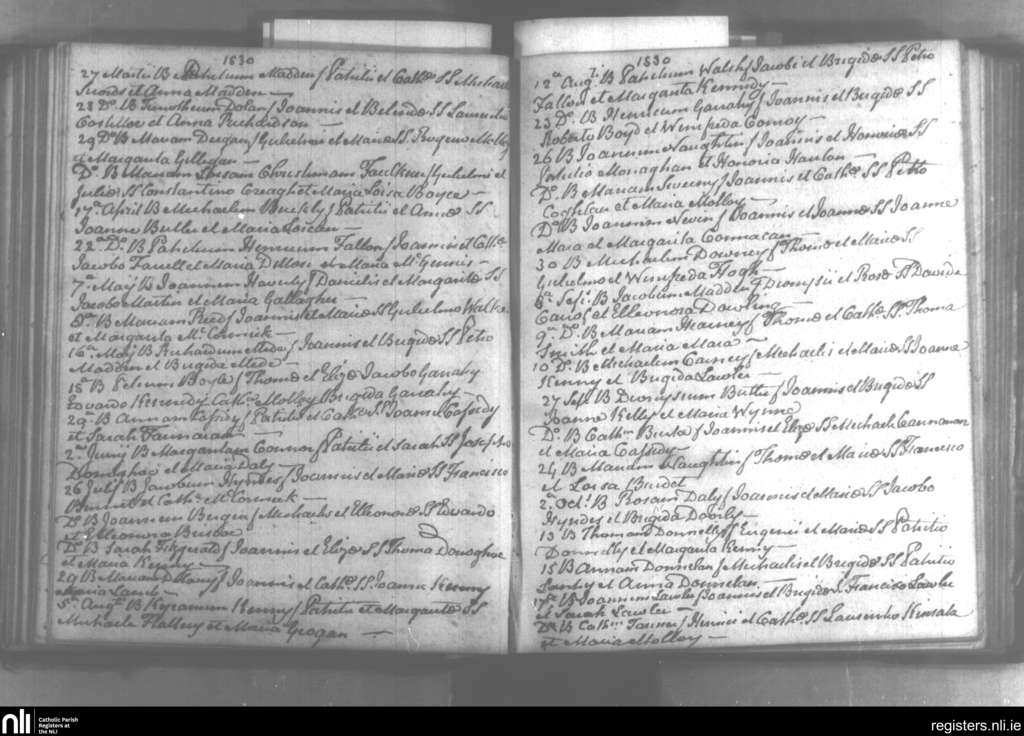 1830
27 Martii B Patricium Madden f Patritii et Cathe SS Michael
et Anna Madden
28 Do. B Timotheum Dolan f Joannis et SS Laurentio
Costelloe et Anna Richardson
29 Do B Mariam Deegan f Gulielmi et Mariæ SS Eugenio
et Margarita Gilligan
Do. B Mariam Susam Christinam Faulkner f Gulielmi et
Juliæ SS Constantino Creagh et Maria Loisa Boyce
17a April B Michaelem f Patritii et Annæ SS
Joanne Butler et Maria
22 Do. B Patricium Henricum Fallon f Joannis et Cathe
Jacobo Farrell et Maria Dillon et Maria Mc Gennis
7a Maij B Joannem Haverty f Danielis et Margaritæ SS
Jacobo Martin et Maria Gallagher
Do. B Mariam Reed f Joannis et Mariæ SS Gulielmo
et Margarita Mc Cormick
16a Maij B Richardum Mede f Joannis et Brigidæ SS Petro
Madden et Brigida Mede
18 B Boyle f Thomæ et Elizæ Jacobo Ganahy
Edvardo Kennedy Cathe Molloy Brigida Ganahy
29a B Annam f Patritii et Cathe SS Joanne Cassidy
et Sarah
2a Junij B Margaritam Connor f Patritii et Sarah SS Josepho
Donoghoe et Maria Daly
26 Julij B Jacobum Hyndes f Joannis et Mariæ SS Francisco
et Cathe Mc Cormick
Do B Joannem Bergin f Michaelis et Eleonoræ SS Edvardo
et Elleonora
Do B Sarah Fitzgerald f Joannis et Elizæ SS Thoma Donoghue
et Maria Kenny
29 B Mariam f Joannis et Cathe SS Joanne Kenny
Maria Lamb
5a Augti B Kyranum Kenny f Patritii et Margaritæ SS
Michaele Flattery et Maria Grogan
1830
12a Augti B Patricium Walsh f Jacobi et Brigidæ SS Petro
Fallon et Margarita Kennedy
23 Do. B Henricum Ganahy f Joannis et Brigidæ SS
Roberto Boyd et Winifreda Conroy
26 B Joannem Naughtin f Joannis et Honoriæ SS
Patritio Monaghan et Honoria Hanlon
Do. B Mariam Sweeny f Joannis et Cathe SS Petro
Coghlan et Maria Molloy
Do B Joannem Nevin f Joannis et Joannæ SS Joanne
Mara et Margarita Cormacan
30 B Michaelem Downey f Thomæ et Mariæ SS
Gulielmo et Winifreda Hogh
8a Sept. B Jacobum Madden f Dionysii et Rosæ SS Davide
et Elleonora Dowling
9a Do. B Mariam Hearney f Thomæ et Cathe SS Thoma
Smith et Maria Mara
10 Do B Michaelem Carney f Michaelis et Mariæ SS Joanne
Kenny et Brigida Lawler
27 Sept B Dionysium Butler f Joannis et Brigidæ SS
Joanne Kelly et Maria Wynne
Do. B Cathm Burke f Joannis et Elizæ SS Michaele
et Maria Cassidy
24 B Mariam Naughtin f Thomæ et Mariæ SS Francisco
et Loisa
2a Octr. B Rosam Daly f Joannis et Mariæ SS Jacobo
Hyndes et Brigida Doorly
13 B Thomam Donnelly f Eugenii et Mariæ SS Patritio
Donnelly et Margarita Kenny
15 B Annam Donnelan f Michaelis et Brigidæ SS Patritio
et Anna Donnelan
17a B Joannem Lawler f Joannis et Brigidæ SS Francisco Lawler
et Sarah Lawler
Do B Cathm f Henrici et Cathe SS Laurentio Kinsala
et Maria Molloy
nli
Catholic Parish
Registers at
the NLI
registers.nli.ie